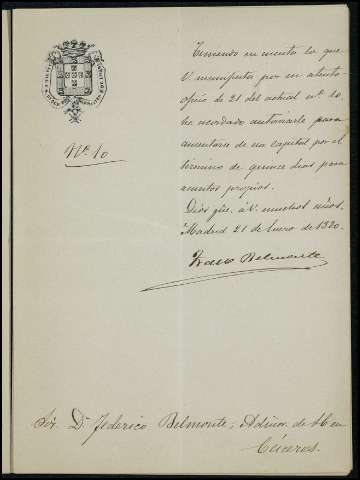 Nº 10
Teniendo en cuenta lo que
V. manifiesta por su atento
oficio de 21 del actual nº 10,
he acordado autorizarle para
ausentarse de esa capital por el
término de quince días para
asuntos propios.
Dios gue. á V. muchos años.
Madrid 21 de Enero de 1890.
Belmonte
Sor. Dn. Federico Belmonte, Admor. de H en
Cáceres.